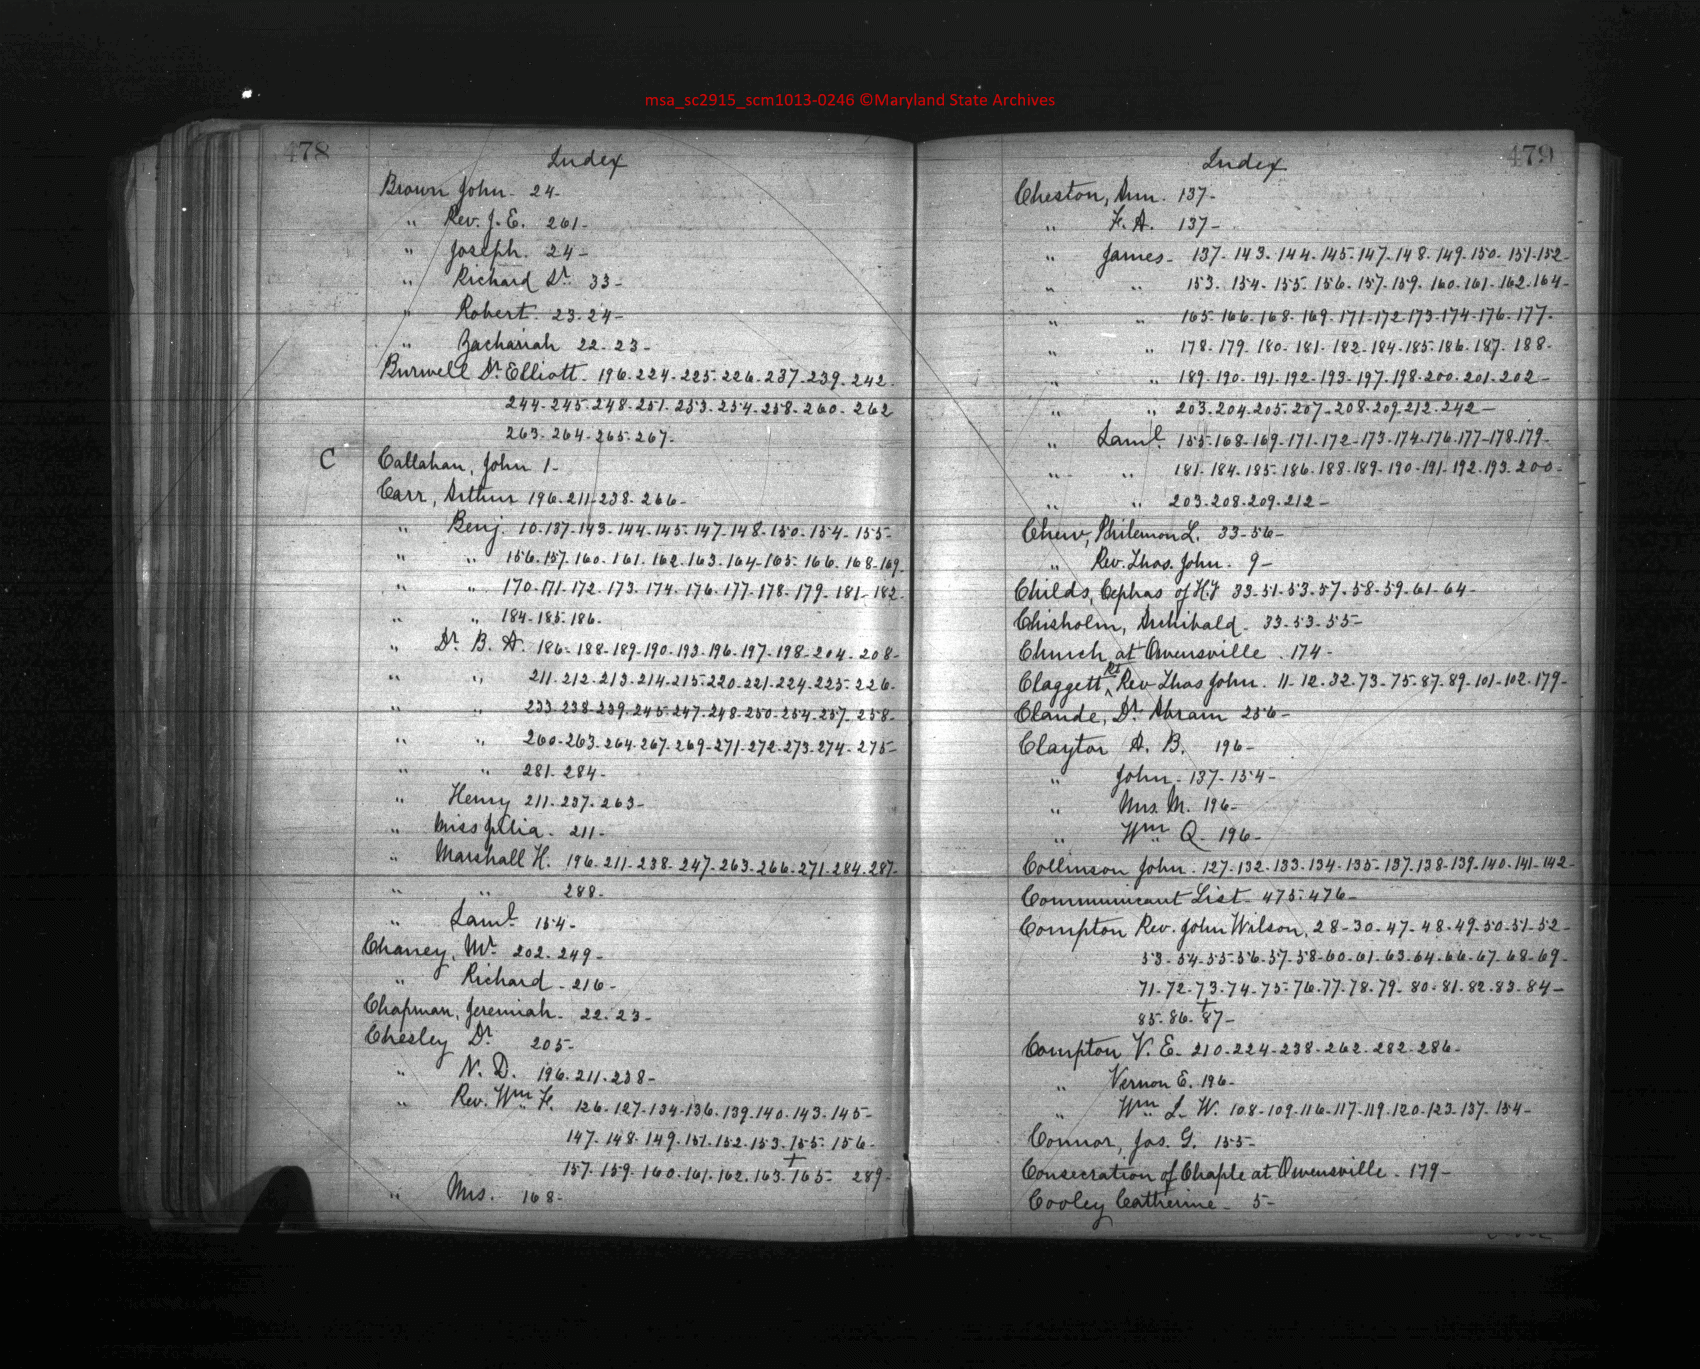 msa_sc2915_scm1013-0246 ©Maryland State Archives
478
Index
Brown John. 24-
" Rev. J. E. 261-
" Joseph. 24-
" Richard Sr. 33-
" Robert. 23-24-
" Zachariah 22-23-
Burwell Dr. Elliott. 196-224-225-226-237-239-242-
244-245-248-251-253-254-258-260-262
263-264-265-267-
C
Callahan, John 1-
Carr, Arthur 196-211-238-266-
" Benj. 10-137-143-144-145-147-148-150-154-155-
" " 156-157-160-161-162-163-164-165-166-168-169-
" " 170-171-172-173-174-176-177-178-179-181-182-
" " 184-185-186-
" Dr. B. A. 186-188-189-190-193-196-197-198-204-208-
" " 211-212-213-214-215-220-221-224-225-226-
" " 233-238-239-245-247-248-250-254-257-258-
" " 260-263-264-267-269-271-272-273-274-275-
" " 281-284-
" Henry 211-237-263-
" Miss Julia. 211-
" Marshall H. 196-211-238-247-263-266-271-284-287-
" " 288-
" Saml. 154-
Chaney, Mr. 202-249-
" Richard - 216-
Chapman, Jeremiah. 22-23-
Chesley Dr. 205-
" N. D. 196-211-238-
" Rev. Wm. F. 126-127-134-136-139-140-143-145-
147-148-149-151-152-153-155-156-
157-159-160-161-162-163-165- 289-
" Mrs. 168-
479
Index
Cheston, Ann. 137-
" F. A. 137-
" James- 137-143-144-145-147-148-149-150-151-152-
" " 153-154-155-156-157-159-160-161-162-164-
" " 165-166-168-169-171-172-173-174-176-177-
" " 178-179-180-181-182-184-185-186-187-188-
" " 189-190-191-192-193-197-198-200-201-202-
" " 203-204-205-207-208-209-212-242-
" Saml. 155-168-169-171-172-173-174-176-177-178-179-
" " 181-184-185-186-188-189-190-191-192-193-200-
" " 203-208-209-212-
Chew, Philemon L. 33-56-
" Rev. Thos. John. 9-
Childs, Cephas of Hy 33-51-53-57-58-59-61-64-
Chisholm, Archibald. 33-53-55-
Church at Owensville. 174-
Claggett Rt Rev Thos John. 11-12-32-73-75-87-89-101-102-179-
Claude, Dr. Abram 256-
Claytor A. B. 196-
" John. 137-154-
" Mrs. M. 196-
" Wm Q. 196-
Collinson John. 127-132-133-134-135-137-138-139-140-141-142-
Communicant List- 475-476-
Compton Rev. John Wilson, 28-30-47-48-49-50-51-52-
53-54-55-56-57-58-60-61-63-64-66-67-68-69-
71-72-73-74-75-76-77-78-79-80-81-82-83-84-
85-86-87-
Compton V. E. 210-224-238-262-282-286-
" Vernon E. 196-
" Wm L. W. 108-109-116-117-119-120-123-137-154-
Connor, Jas. G. 155-
Consecration of Chaple at Owensville. 179-
Cooley Catherine - 5-